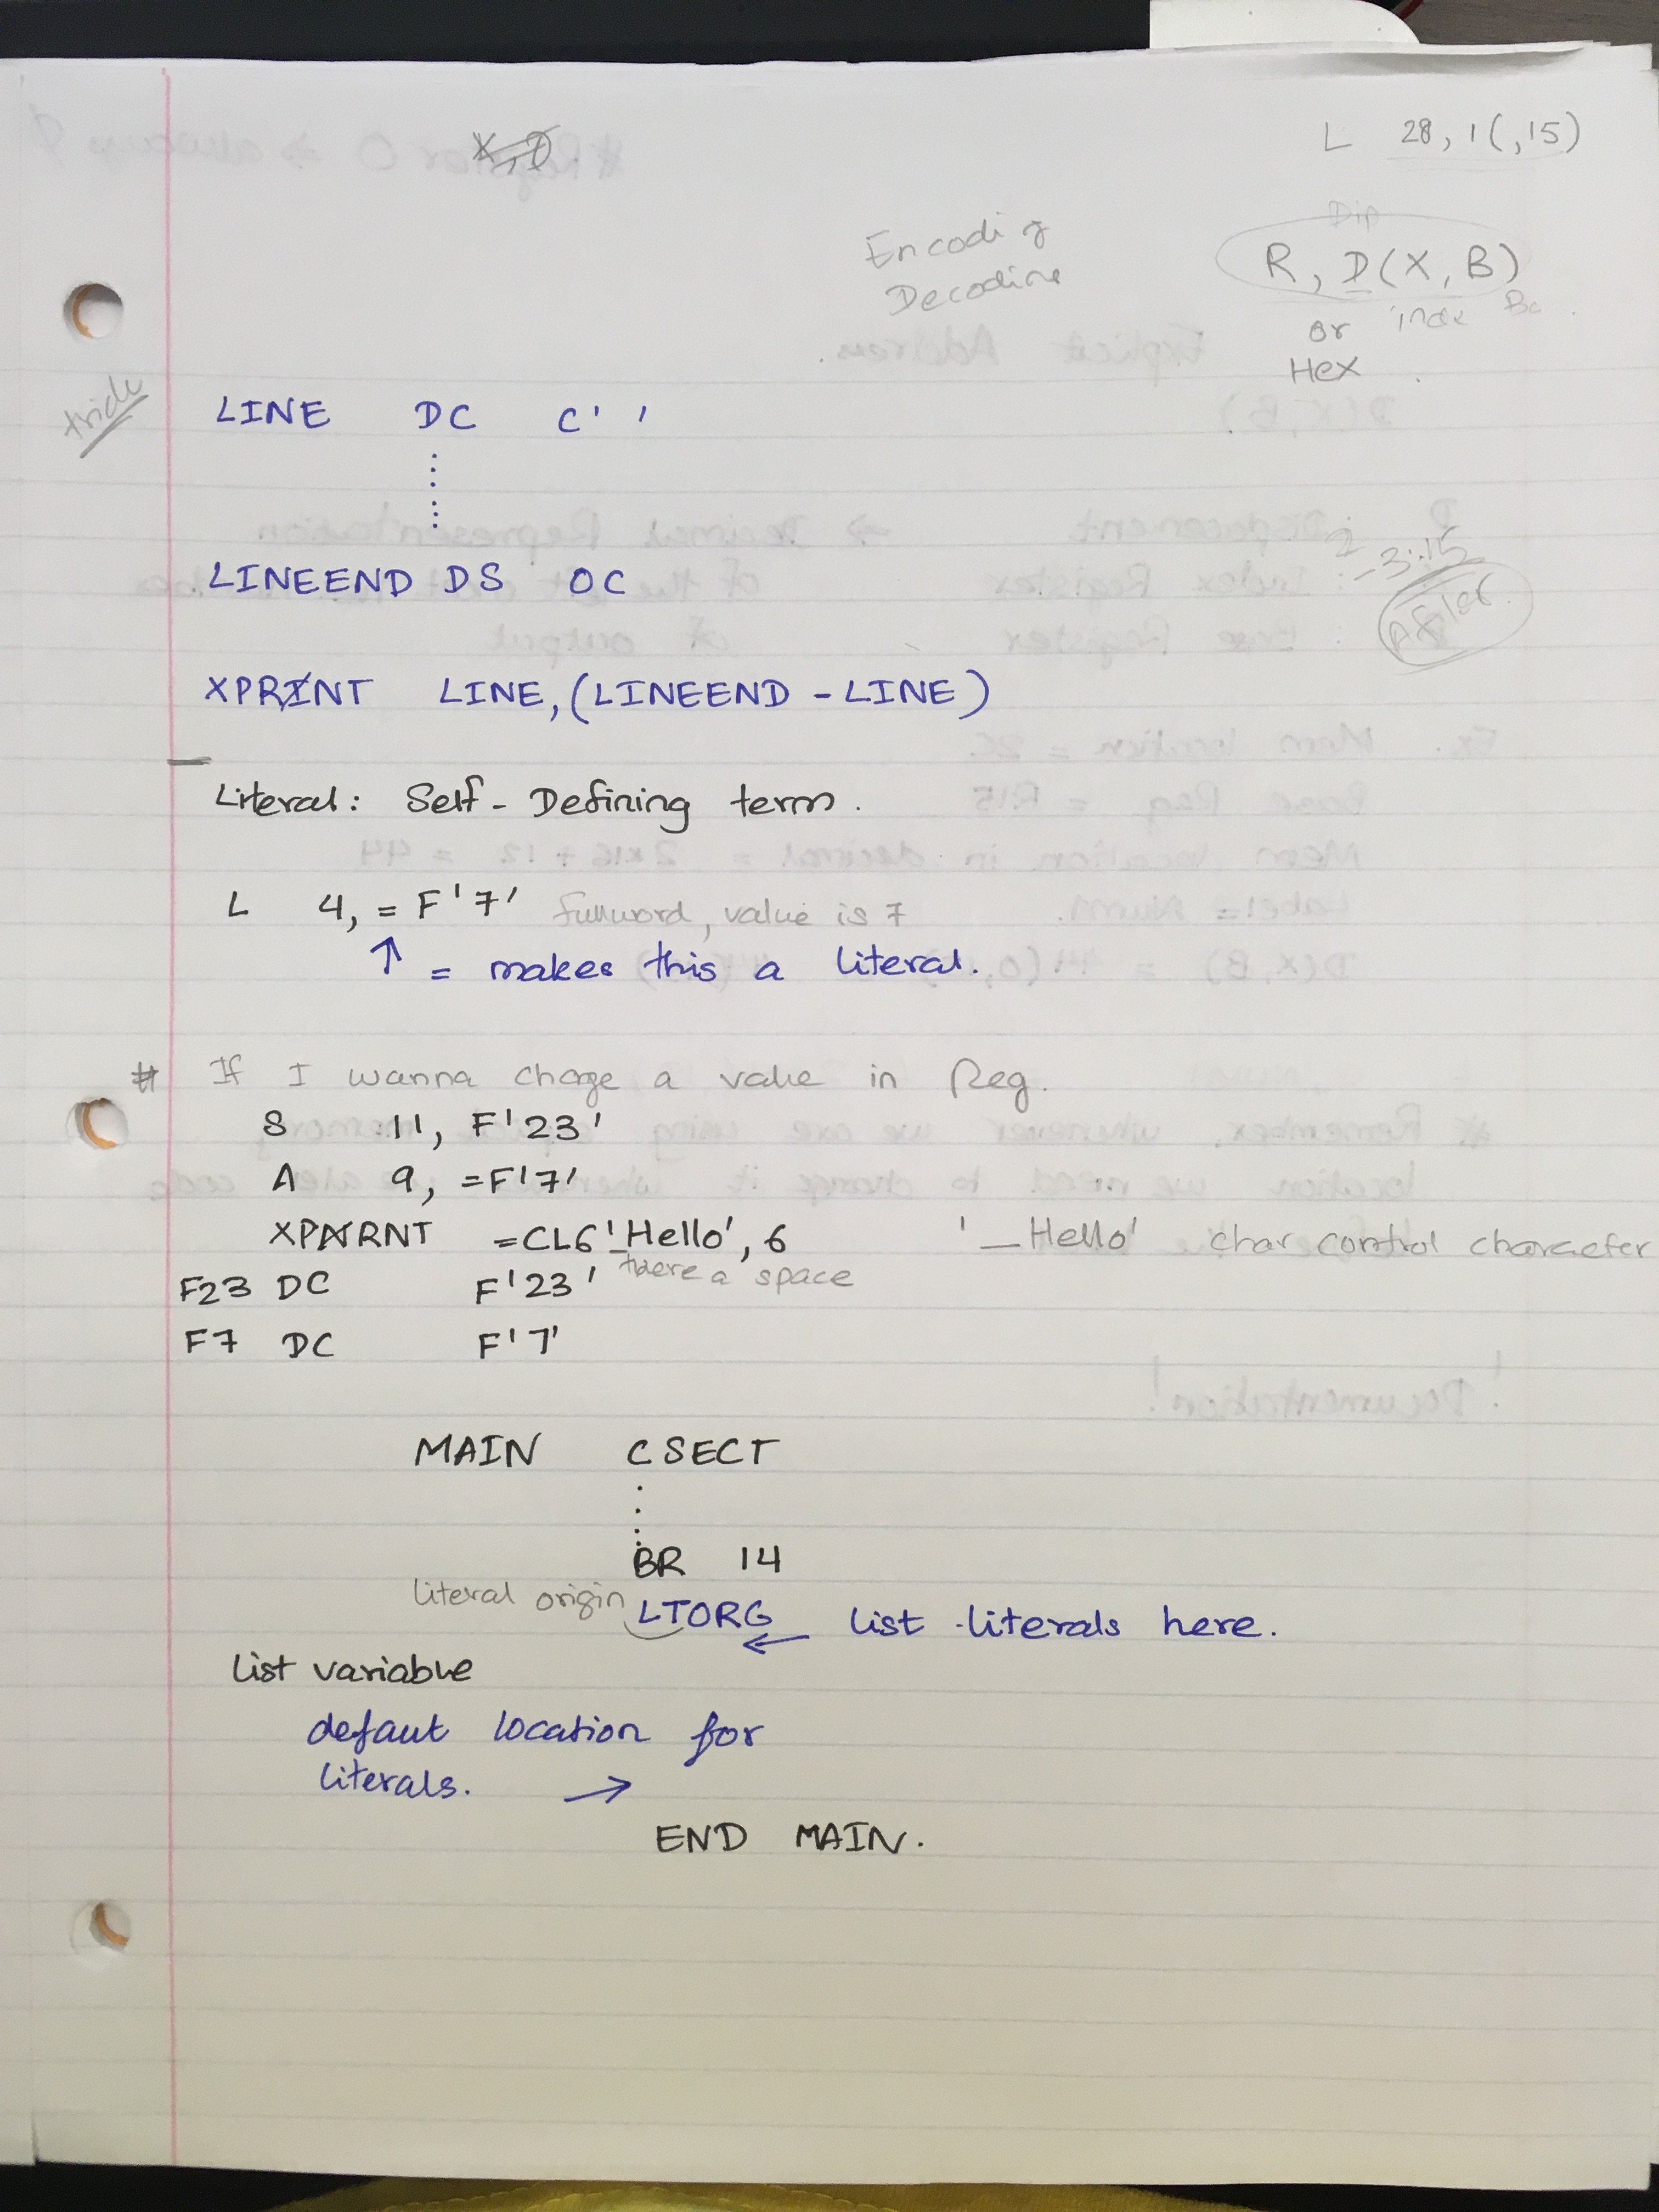 L 28, 1(,15)
Disp
R, D(X, B)
or index
Hex
Decoding
trick
LINE DC C' '
LINEEND DS 0C
XPRNT LINE,(LINEEND - LINE)
Literal: Self-Defining term.
L 4, = F'7' fullword, value is 7
↑ = makes this a literal.
# If I wanna chage a value in Reg.
S 11, F'23'
A 9, =F'7'
XPRNT =CL6' Hello', 6 '_Hello' char control character
there a space
F23 DC F'23'
F7 DC F'7'
MAIN CSECT
BR 14
literal origin
LTORG ← list literals here.
list variable
defaut location for
literals. →
END MAIN.
2 - 3:15
After